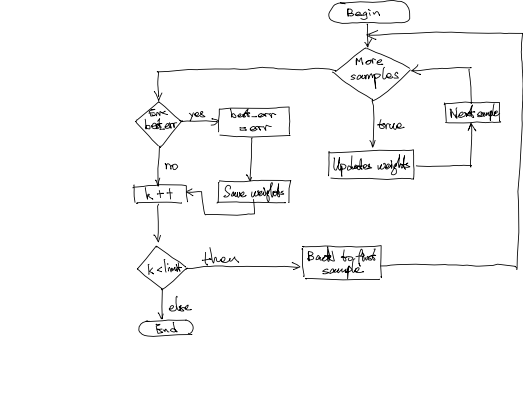 Begin
More
samples
true
Updates weights
Next sample
Err<
best_err
yes
best_err
= err
Save weights
no
k++
k<limit
then
Back to first
sample
else
End